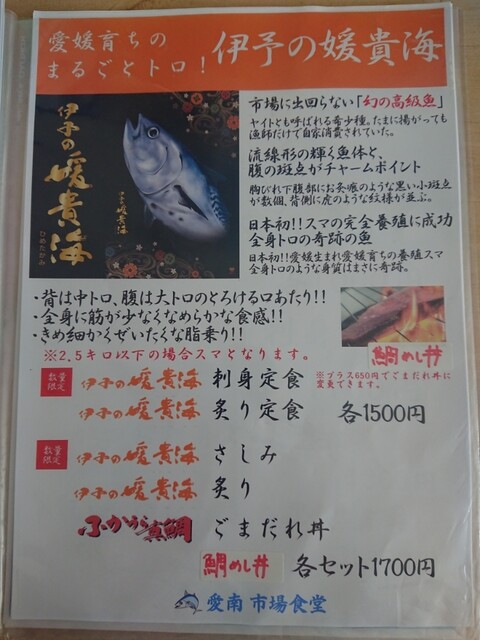 愛媛育ちの
まるごとトロ！
伊予の媛貴海
伊予の媛貴海
ひめたかみ
伊予の媛貴海
市場に出回らない「幻の高級魚」
ヤイトとも呼ばれる希少種。たまに揚がっても
漁師だけで自家消費されていた。
流線形の輝く魚体と、
腹の斑点がチャームポイント
胸びれ下腹部にお灸痕のような黒い小斑点
が数個、背側に虎のような紋様が並ぶ。
日本初！！スマの完全養殖に成功
全身トロの奇跡の魚
日本初！！愛媛生まれ愛媛育ちの養殖スマ
全身トロのような身質はまさに奇跡。
・背は中トロ、腹は大トロのとろける口あたり！！
・全身に筋が少なくなめらかな食感！！
・きめ細かくぜいたくな脂乗り！！
※２.５キロ以下の場合スマとなります。
鯛めし丼
※プラス650円でごまだれ丼に
変更できます。
数量
限定
伊予の媛貴海 刺身定食
伊予の媛貴海 炙り定食 各1500円
数量
限定
伊予の媛貴海 さしみ
伊予の媛貴海 炙り
ふかうら真鯛 ごまだれ丼
鯛めし丼 各セット1700円
愛南 市場食堂